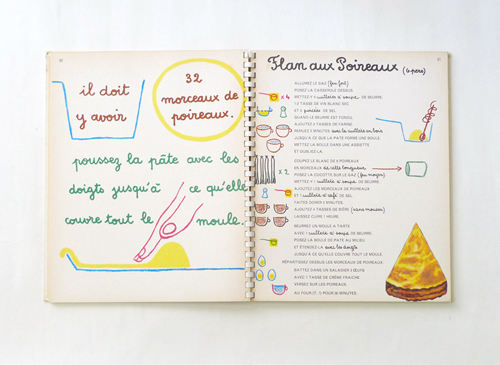 il doit
y avoir
32
morceaux de
poireaux.
poussez la pâte avec les
doigts jusqu'à ce qu'elle
couvre tout le moule.
Flan aux Poireaux (6 pers)
ALLUMEZ LE GAZ (feu fort)
POSEZ LA CASSEROLE DESSUS.
x 4 METTEZ-Y 1 cuillère à soupe DE BEURRE.
1/2 TASSE DE VIN BLANC SEC.
ET 2 pincées DE SEL.
QUAND LE BEURRE EST FONDU,
AJOUTEZ 2 TASSES DE FARINE.
avec la cuillère en bois
JUSQU'À CE QUE LA PATE FORME UNE BOULE.
METTEZ LA BOULE DANS UNE ASSIETTE.
ET OUBLIEZ-LA.
COUPEZ LE BLANC DE 8 POIREAUX
EN MORCEAUX de cette longueur
x 2 POSEZ LA COCOTTE SUR LE GAZ (feu moyen)
METTEZ-Y 1 cuillère à soupe DE BEURRE.
AJOUTEZ LES MORCEAUX DE POIREAUX
ET 1 cuillère à café DE SEL.
FAITES DORER 5 MINUTES.
AJOUTEZ 3 TASSES DE
LAISSEZ CUIRE 1 HEURE.
BEURREZ UN MOULE A TARTE
AVEC 1 cuillère à soupe DE BEURRE.
POSEZ LA BOULE DE PATE AU MILIEU
ET ÉTENDEZ-LA avec les doigts
JUSQU'À CE QU'ELLE COUVRE TOUT LE MOULE.
RÉPARTISSEZ DESSUS LES MORCEAUX DE POIREAUX.
BATTEZ DANS UN SALADIER 3 ŒUFS
AVEC 1 TASSE DE CRÈME FRAICHE
VERSEZ SUR LES POIREAUX.
AU FOUR